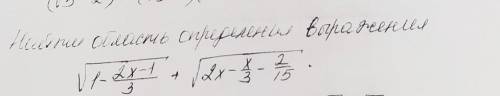 Найти область определения выражения
√(1 - (2x-1)/3) + √(2x - x/3 - 2/15).